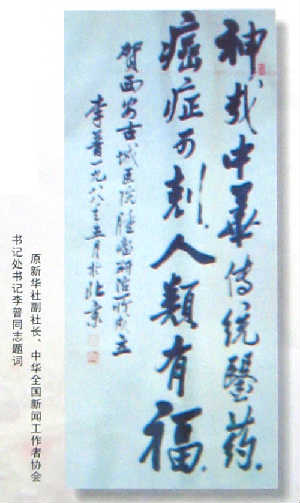 神哉中華傳統醫药
癌症可制人類有福
賀西安古城医院肿瘤研治所成立
李普一九八八年五月於北京
原新华社副社长、中华全国新闻工作者协会
书记处书记李普同志题词